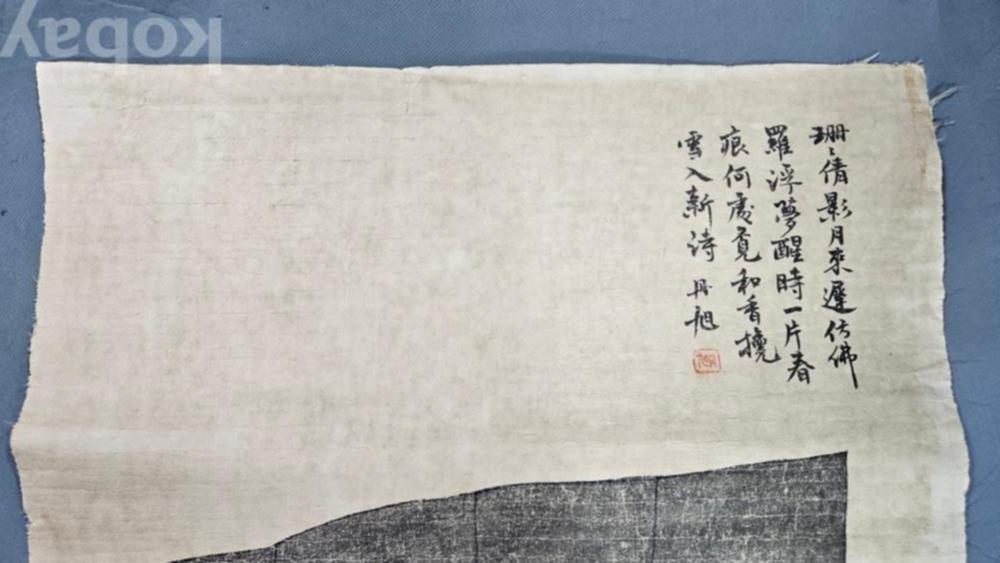 珊〻倩影月來遲仿佛
羅浮夢醒時一片春
痕何處覓和香攙
雪入新詩 丹旭
kobay